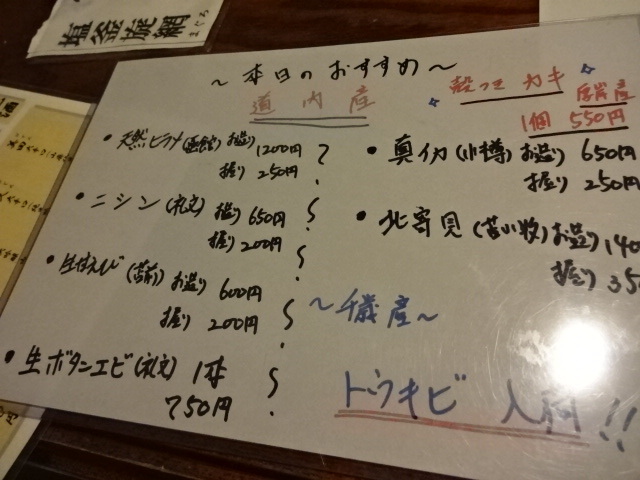 塩釜旋網
まぐろ
～本日のおすすめ～
道内産
殻つきカキ 厚岸産
1個 550円
・天然ヒラメ(函館) お造り 1200円
握り 250円
・ニシン(礼文) お造り 650円
握り 200円
・生甘えび(苫前) お造り 600円
握り 200円
・生ボタンエビ(礼文) 1本
750円
・真イカ(小樽) お造り 650円
握り 250円
・北寄貝(苫小牧) お造り 140
握り 350
～千歳産～
トウキビ 入荷!!